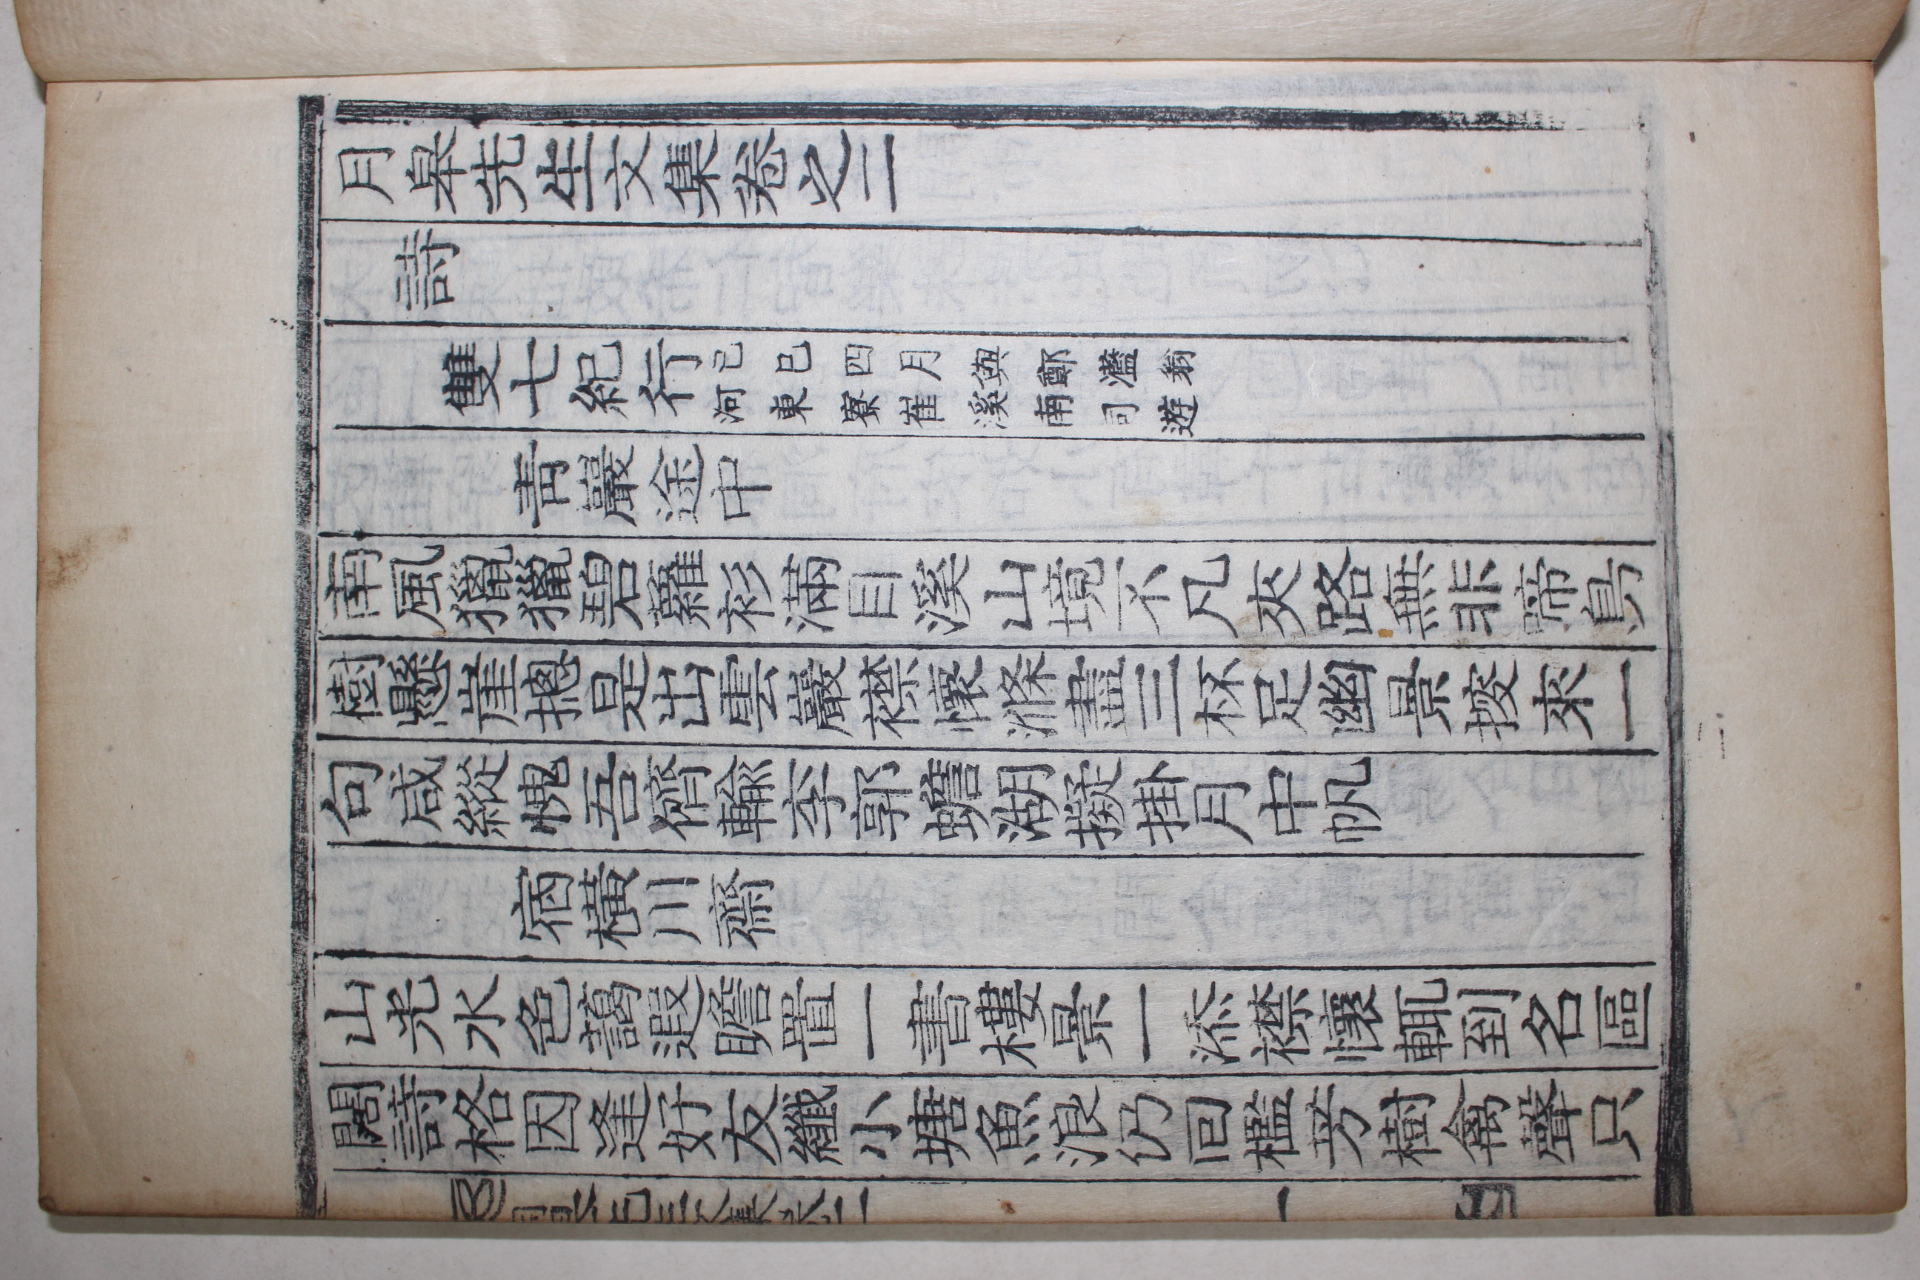 月皐先生文集卷之二
詩
雙七紀行 己巳四月與鄭灆翁
河東寮崔溪南司遊
青巖途中
南風獵獵碧蘿衫滿目溪山境不凡夾路無非啼鳥
樹懸崖摠是出雲巖襟懷滌盡三杯足幽景挼來一
句咸縱愧吾儕輸李郭蟾湖擬掛月中帆
宿橫川齋
山光水色藹遐瞻置一書樓景一添襟懷輒到名區
闊詩格因逢好友纖小塘魚浪仍回檻芳樹禽聲只